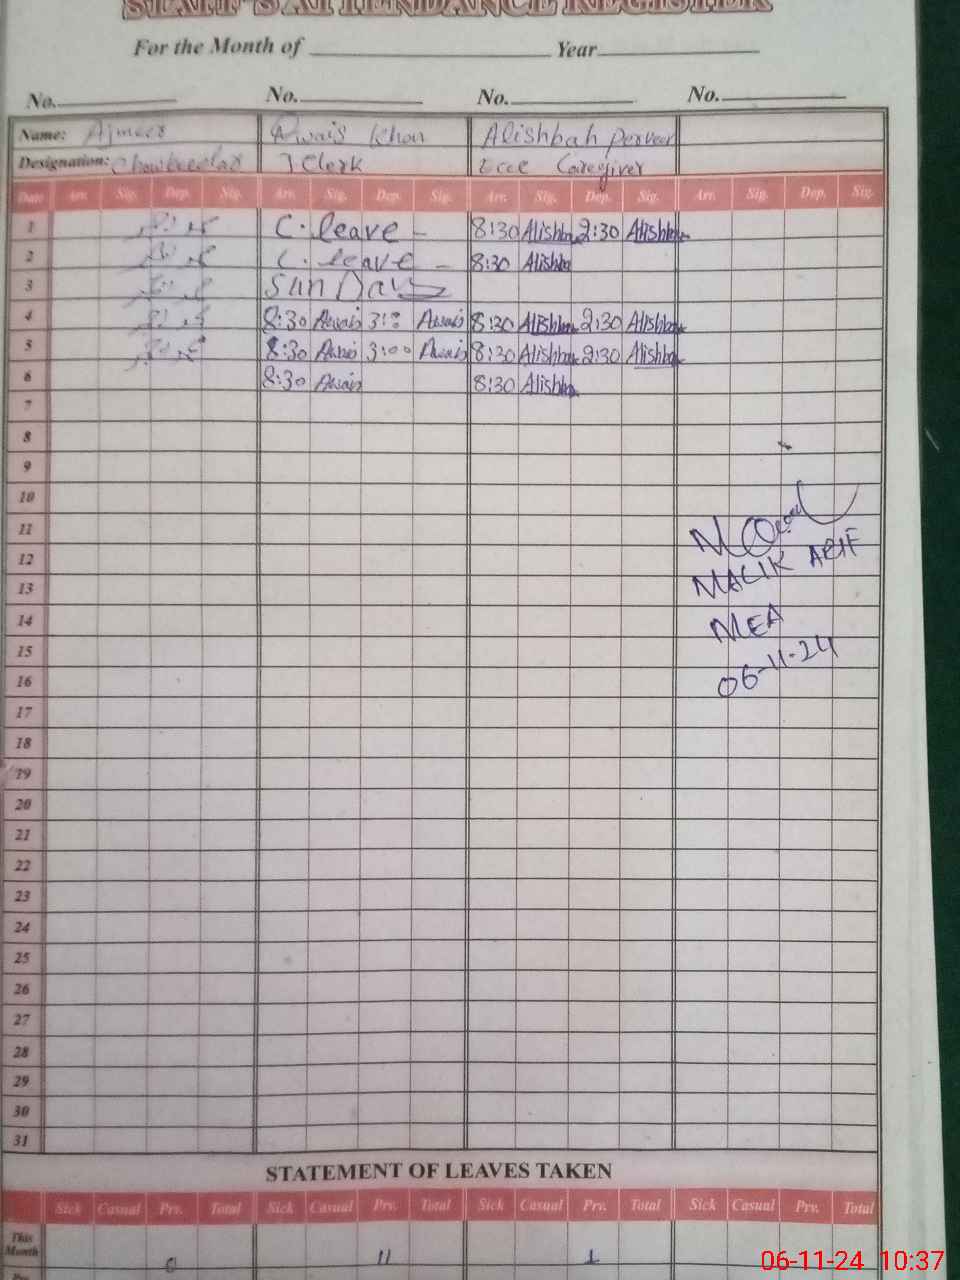 STAFF'S ATTENDANCE REGISTER
For the Month of Year
No. No. No. No.
Name: Ajmeer Awais Khan Alishbah perveen
Designation: Chowkeedar J Clerk Ecce Caregiver
Date Arr. Sig. Dep. Sig. Arr. Sig. Dep. Sig. Arr. Sig. Dep. Sig. Arr. Sig. Dep. Sig.
1 C. leave - 8:30 Alishba 2:30 Alishba
2 C. leave - 8:30 Alishba
3 Sun Day
4 8:30 Awais Awais 8:30 Alishba 2:30 Alishba
5 8:30 Awais 3:00 Awais 8:30 Alishba 2:30 Alishba
6 8:30 Awais 8:30 Alishba
7
8
9
10
11
12
13
14
15
16
17
18
19
20
21
22
23
24
25
26
27
28
29
30
31
MALIK ARIF
MEA
06-11-24
STATEMENT OF LEAVES TAKEN
Sick Casual Prv. Total Sick Casual Prv. Total Sick Casual Prv. Total Sick Casual Prv. Total
This
Month
11 1
06-11-24 10:37